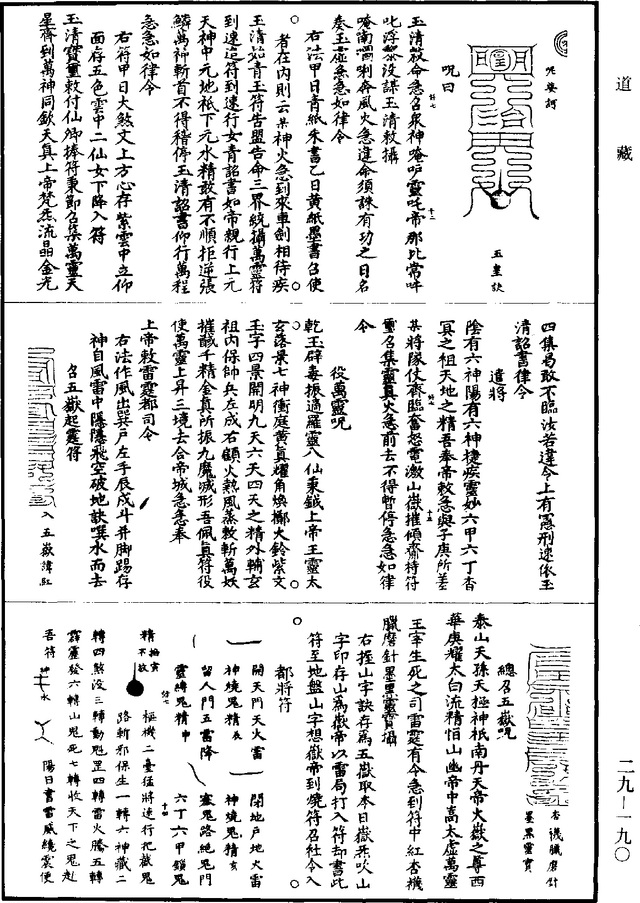 道藏
二九—一九〇
咒曰
五皇訣
玉清敕命急召眾神唵吽靈吒帝那比常吽
吡浮黎沒謀玉清敕攝
唵南嚪唎奔風火急違命須誅有功之日名
奏玉虛急急如律令
右法甲日青紙朱書乙日黃紙墨書召使
者在內則云某神火急到來車劍相待疾
玉清始青玉符告盟告命三界統攝萬靈符
到速追符到速行女青詔書如帝親行上元
天神中元地祇下元水精敢有不順拒逆張
鱗萬神斬首不得稽停玉清詔書仰行萬程
急急如律令
右符甲日大煞文上方心存紫雲中立仰
面存五色雲中二仙女下降入符
玉清寶靈敕付仙卿捧符秉節召集萬靈天
星齊到萬神同欽天真上帝梵炁流晶金光
四集曷敢不臨汝若違令上有冥刑速依玉
清詔書律令
遣將
陰有六神陽有六神捷疾靈妙六甲六丁杳
冥之祖天地之精吾奉帝敕急與子庚所差
某將隊仗齊臨奮怒電激山嶽摧傾齎持符
璽召集靈真火急前去不得暫停急急如律
令
役萬靈咒
乾玉辟毒振過羅靈八仙秉鉞上帝王靈太
玄落景七神衝庭黃真耀角煥擲火鈴紫文
玉字四景開明九天六天四天之精外輔玄
祖內保帥兵左成右顧火熱風蒸敕斬萬妖
摧馘千精金真所振九魔滅形吾佩真符役
使萬靈上昇三境去合帝城急急奉
上帝敕雷霆都司令
右法作風出巽戶左手辰戌斗并腳踢存
神自風雷中隱隱飛空破地訣噀水而去
召五嶽起霆符
入五嶽諱紅
總召五嶽咒
泰山天孫天極神祇南丹天帝火嶽之尊西
華庚耀太白流精恒山幽帝中高太虛萬靈
玉宰生死之司雷霆有令急到符中紅杏襪
臘磨針墨黑靈寶攝
右捏山字訣存為五嶽取本日嶽炁吹山
字印存山為嶽帝以雷局打入符却書此
符至地盤山字想嶽帝到燒符召社令入
都將符
開天門天火雷
閉地戶地火雷
神燒鬼精亥
留人門五雷降
塞鬼路絕鬼門
靈縛鬼精申
六丁六甲鎖鬼
樞機二臺猛將速行扼截鬼
路斬邪保生一轉六神藏二
轉四煞沒三轉動魁罡四轉雷火騰五轉
霹靂發六轉山鬼死七轉收天下之鬼赴
吾符
陽日書雷威繞震便